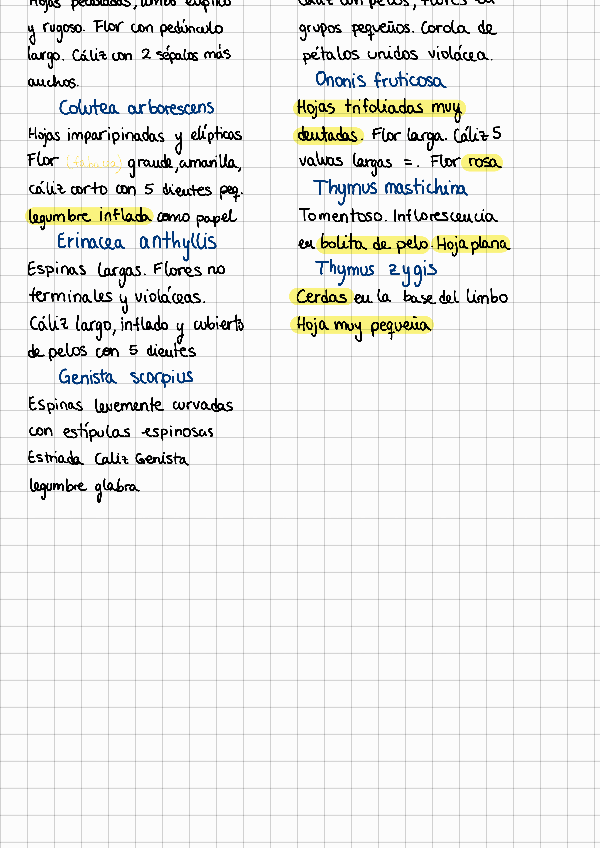 Hojas pecioladas, limbo elíptico
y rugoso. Flor con pedúnculo
largo. Cáliz con 2 sépalos más
anchos.
Colutea arborescens
Hojas imparipinadas y elípticas
Flor grande, amarilla,
cáliz corto con 5 dientes peq.
legumbre inflada como papel
Erinacea anthyllis
Espinas largas. Flores no
terminales y violáceas.
Cáliz largo, inflado y cubierto
de pelos con 5 dientes
Genista scorpius
Espinas levemente curvadas
con estípulas espinosas
Estriada Caliz Genista
legumbre glabra
Cáliz con pelos, flores en
grupos pequeños. Corola de
pétalos unidos violácea.
Ononis fruticosa
Hojas trifoliadas muy
dentadas. Flor larga. Cáliz 5
valvas largas =. Flor rosa
Thymus mastichina
Tomentoso. Inflorescencia
en bolita de pelo. Hoja plana
Thymus zygis
Cerdas en la base del limbo
Hoja muy pequeña